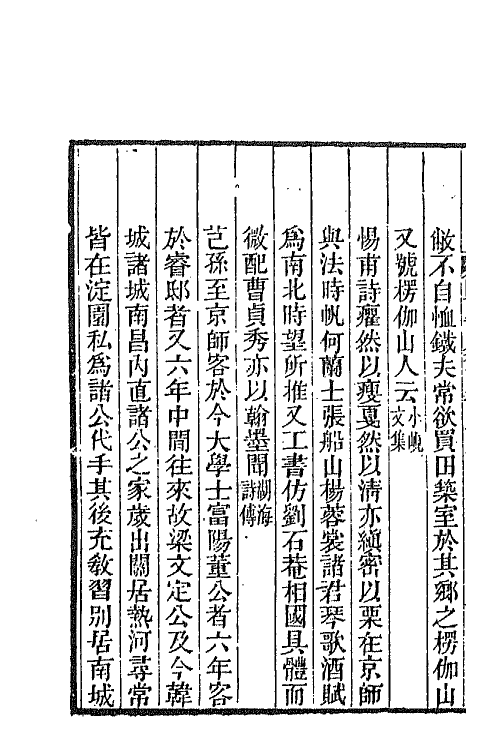 敝不自恤鐵夫常欲買田築室於其鄉之楞伽山
又號楞伽山人云小峴文集
惕甫詩癯然以瘦戛然以清亦縝密以栗在京師
與法時帆何蘭士張船山楊蓉裳諸君琴歌酒賦
爲南北時望所推又工書仿劉石菴相國具體而
微配曹貞秀亦以翰墨聞湖海詩傳
芑孫至京師客於今大學士富陽董公者六年客
於睿邸者又六年中間往來故梁文定公及今韓
城諸城南昌內直諸公之家歲出關居熱河尋常
皆在淀園私爲諸公代手其後充敎習別居南城